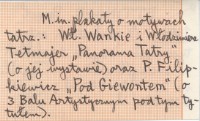 M.in. plakaty o motywach
tatrz.: Wł. Wankie i Włodzimierz
Tetmajer „Panorama Tatry"
(o jej wystawie) oraz P. Filip-
kiewicz „Pod Giewontem" (o
3 Balu Artystycznym pod tym ty-
tułem).